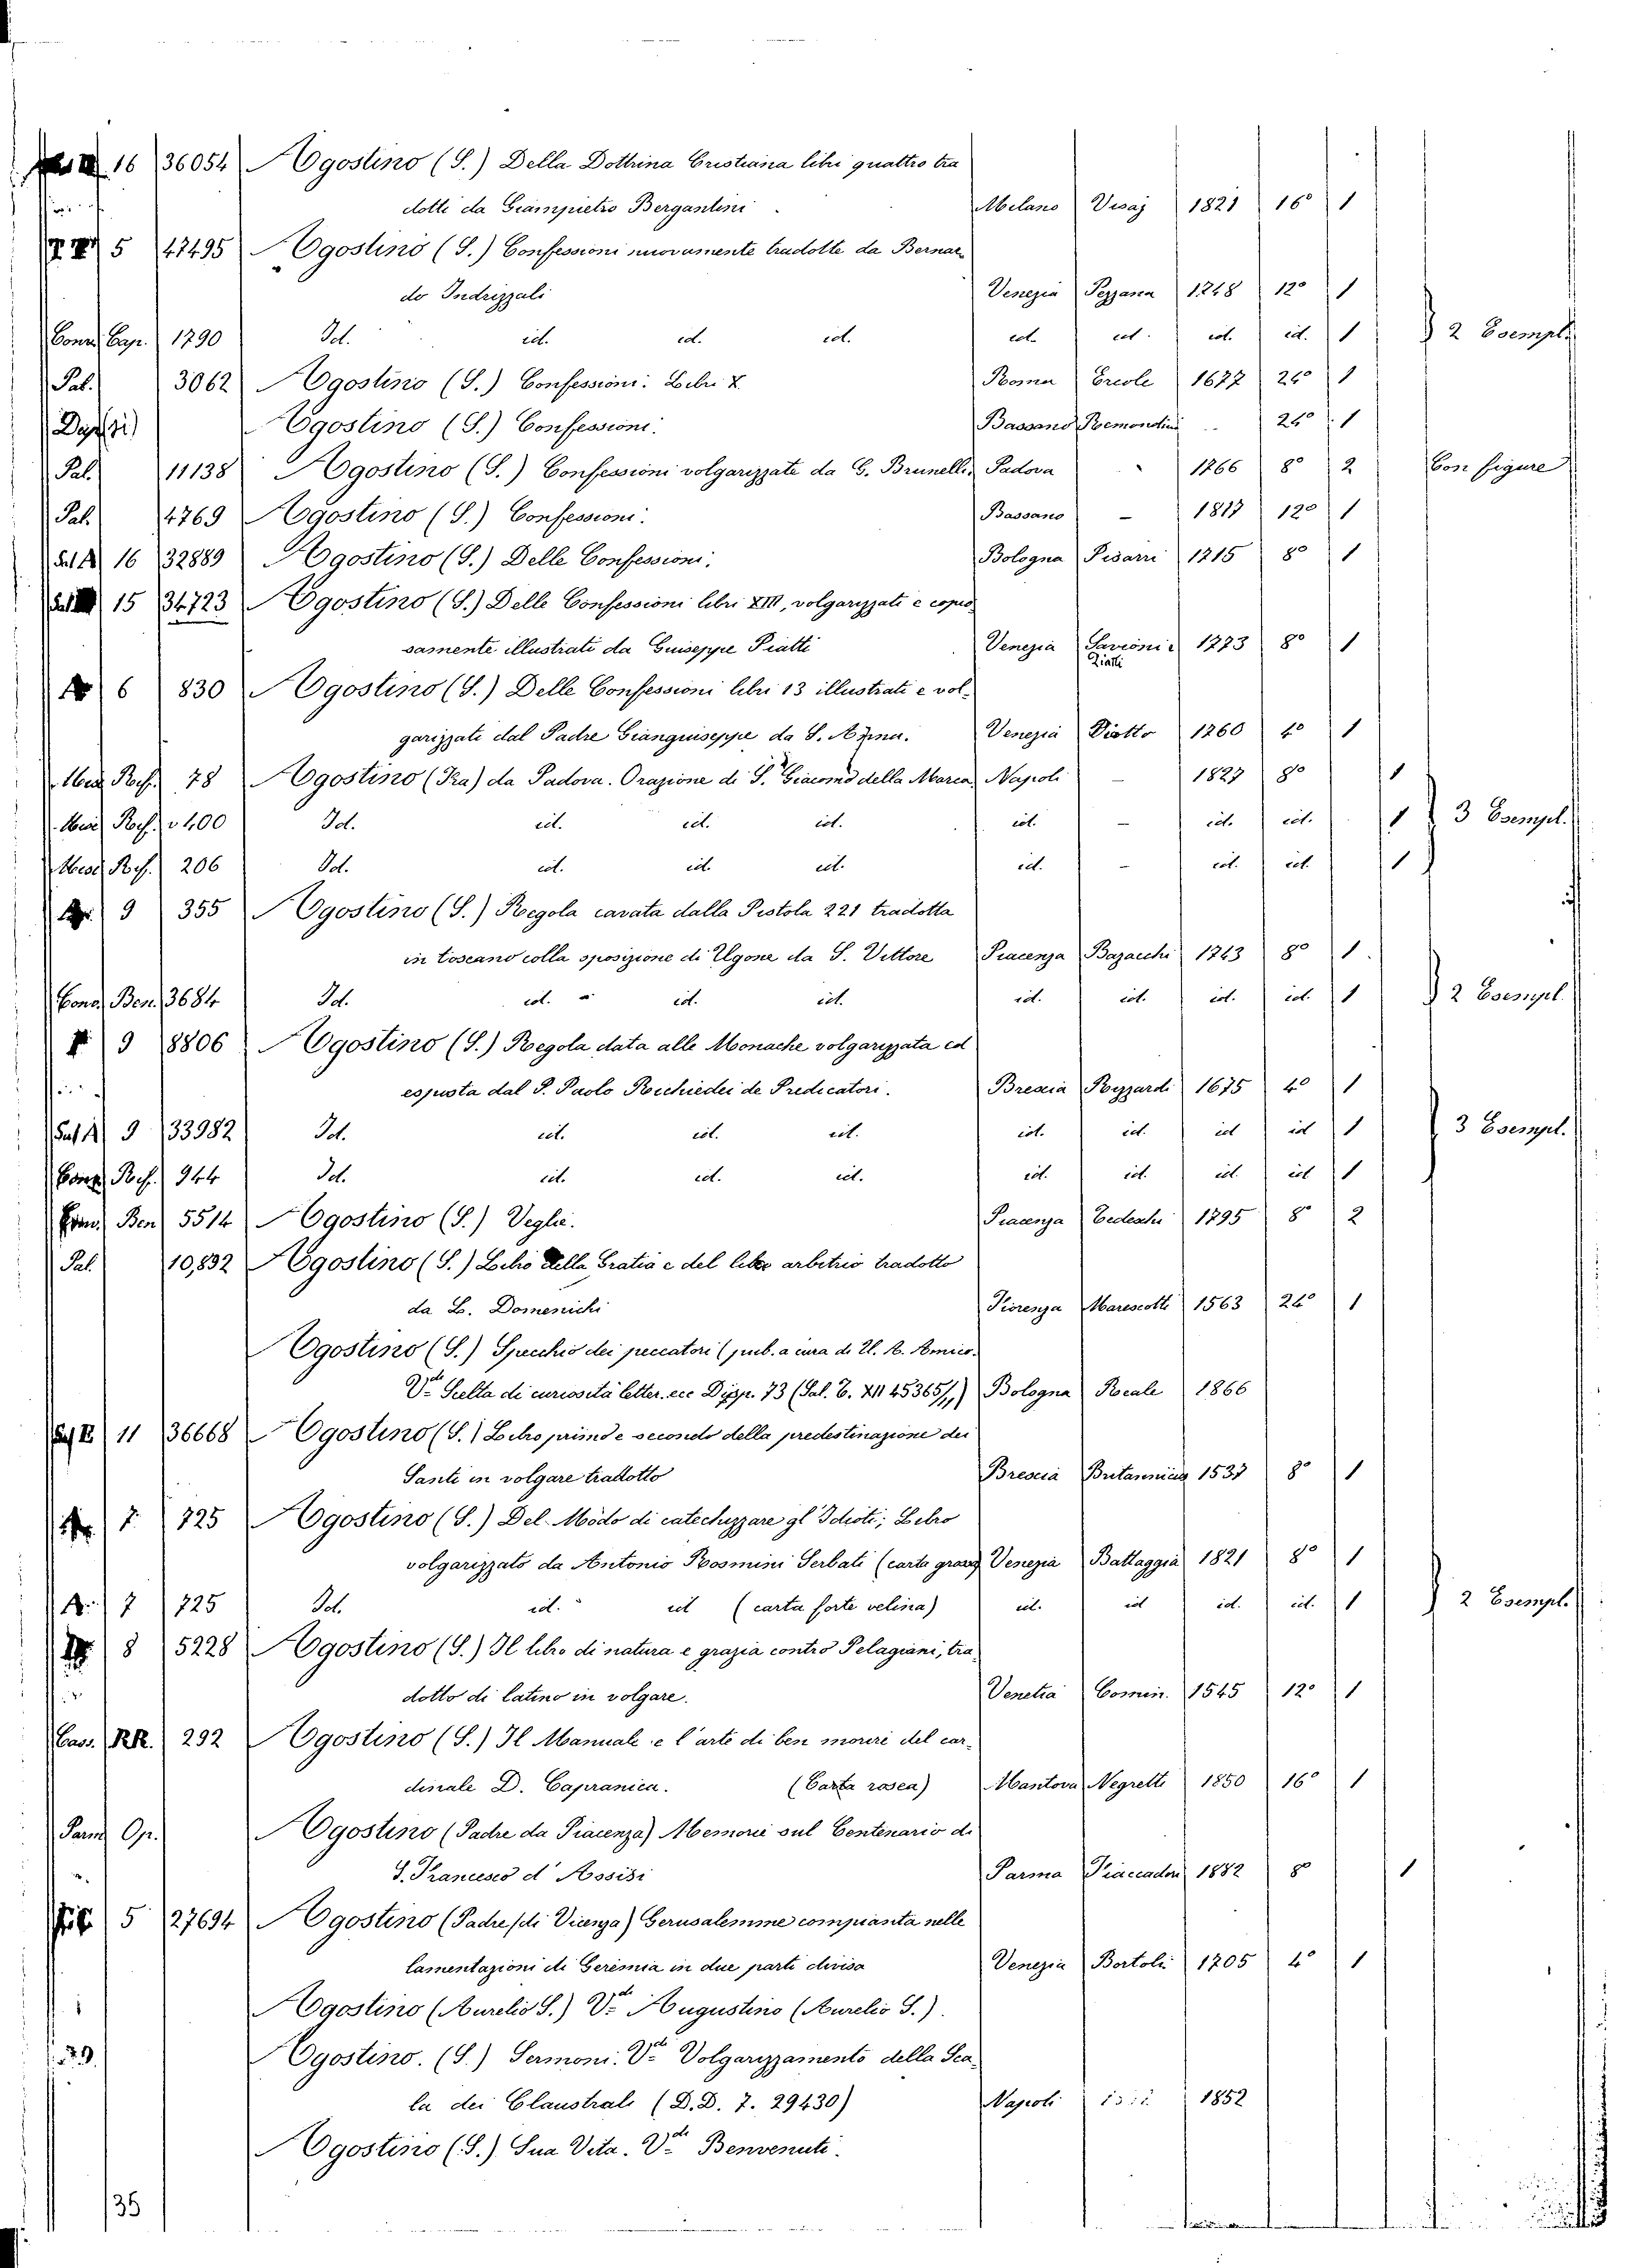 16 36054 Agostino (S.) Della Dottrina Cristiana libri quattro tra
dotti da Giampietro Bergantini Milano Visaj 1821 16° 1
5 47495 Agostino (S.) Confessioni nuovamente tradotte da Bernar
do Indrizzali Venezia Pezzana 1748 12° 1
Conv. Cap. 1790 Id. id. id. id. id. id. id. id. 1 } 2 Esempl.
Pal. 3062 Agostino (S.) Confessioni: Libri X Roma Ercole 1677 24° 1
Agostino (S.) Confessioni. Bassano Remondini 24° 1
Pal. 11138 Agostino (S.) Confessioni volgarizzate da G. Brunelli. Padova 1766 8° 2 Con figure
Pal. 4769 Agostino (S.) Confessioni. Bassano – 1817 12° 1
16 32889 Agostino (S.) Delle Confessioni. Bologna Pisarri 1715 8° 1
15 34723 Agostino (S.) Delle Confessioni libri XIII, volgarizzati e copio
samente illustrati da Guiseppe Piatti Venezia Savioni e 1773 8° 1
Piatti
6 830 Agostino (S.) Delle Confessioni libri 13 illustrati e vol-
garizzati dal Padre Gianguiseppe da S. Anna. Venezia 1760 4° 1
Rof. 78 Agostino (Fra) da Padova. Orazione di S. Giacomo della Marca Napoli – 1827 8° 1
Rof. 400 Id. id. id. id. id. – id. id. 1 } 3 Esempl.
Rof. 206 Id. id. id. id. id. – id. id. 1
9 355 Agostino (S.) Regola cavata dalla Pistola 221 tradotta
in toscano colla sposizione di Ugone da S. Vittore Piacenza Bazacchi 1743 8° 1
Conv. Ben. 3684 Id. id. id. id. id. id. id. id. 1 } 2 Esempl.
9 8806 Agostino (S.) Regola data alle Monache volgarizzata ed
esposta dal P. Paolo Richiedei de Predicatori. Brescia Rizzardi 1675 4° 1
9 33982 Id. id. id. id. id. id. id id 1 } 3 Esempl.
Conv. Rof. 944 Id. id. id. id. id. id. id. id 1
Ben 5514 Agostino (S.) Veglie. Piacenza Tedeschi 1795 8° 2
Pal. 10,832 Agostino (S.) Libro della Gratia e del libero arbitrio tradotto
da L. Domenichi Fiorenza Marescotti 1563 24° 1
Agostino (S.) Specchio dei peccatori (pub. a cura di U. A. Amico.
Vdi Scelta di curiosità letter. ecc Disp. 73 (Sal. E. XII 45365/,,) Bologna 1866
11 36668 Agostino (S.) Libro primo e secondo della predestinazione dei
Santi in volgare tradotto Brescia Britannicus 1537 8° 1
7. 725 Agostino (S.) Del Modo di catechizzare gl'Idioti; Libro
volgarizzato da Antonio Rosmini Serbati (carta grave) Venezia Battaggia 1821 8° 1
7 725 Id. id. id (carta forte velina) id. id id. id. 1 } 2 Esempl.
8 5228 Agostino (S.) Il libro di natura e grazia contro Pelagiani, tra
dotto di latino in volgare. Venetia Comin. 1545 12° 1
Cass. RR. 292 Agostino (S.) Il Manuale e l'arte di ben morire del car-
dinale D. Capranica. (Carta rosea) Mantova Negretti 1850 16° 1
Parm. Op. Agostino (Padre da Piacenza) Memorie sul Centenario di
S. Francesco d'Assisi Parma Fiaccadori 1882 8° 1
5 27694 Agostino (Padre di Vicenza) Gerusalemme compianta nelle
lamentazioni di Geremia in due parti divisa Venezia Bortoli 1705 4° 1
Agostino (Aurelio S.) Vdi Augustino (Aurelio S.).
Agostino. (S.) Sermoni. Vdi Volgarizzamento della Sca
la dei Claustrali (D.D. 7. 29430) Napoli 1852
Agostino (S.) Sua Vita. Vdi Benvenuti.
35